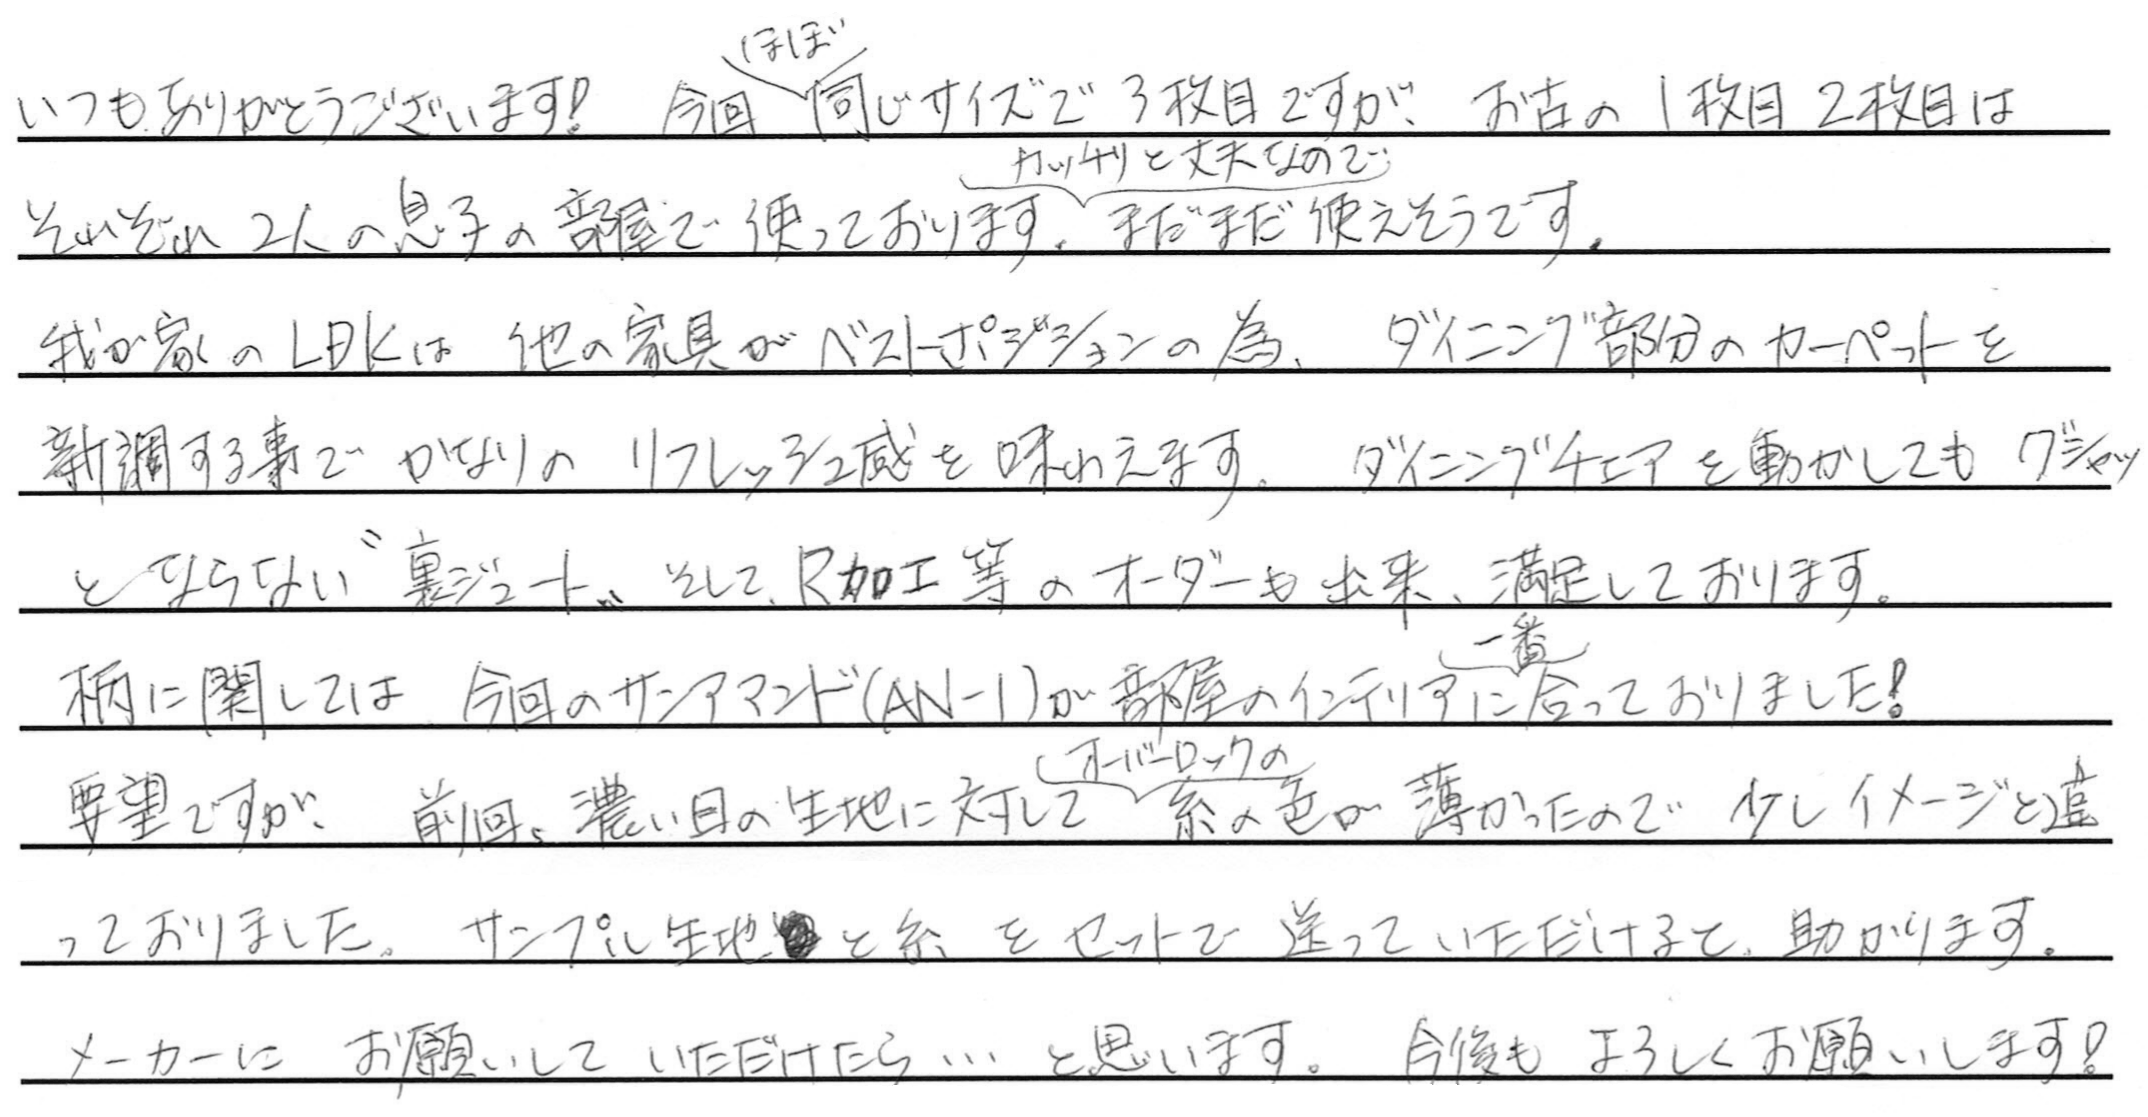 いつもありがとうございます! 今回ほぼ同じサイズで3枚目ですが、お古の1枚目2枚目は
それぞれ2人の息子の部屋で使っております。カッチリと丈夫なのでまだまだ使えそうです。
我が家のLDKは他の家具がベストポジションの為、ダイニング部分のカーペットを
新調する事でかなりのリフレッシュ感を味わえます。ダイニングチェアを動かしてもグシャッ
とならない〝裏ジュート〟そして、R加工等のオーダーも出来、満足しております。
柄に関しては今回のサンアマンド(AN-1)が部屋のインテリアに一番合っておりました!
要望ですが、前回、濃い目の生地に対してオーバーロックの糸の色が薄かったので少しイメージと違
っておりました。サンプル生地と糸をセットで送っていただけると、助かります。
メーカーにお願いしていただけたら…と思います。今後もよろしくお願いします!